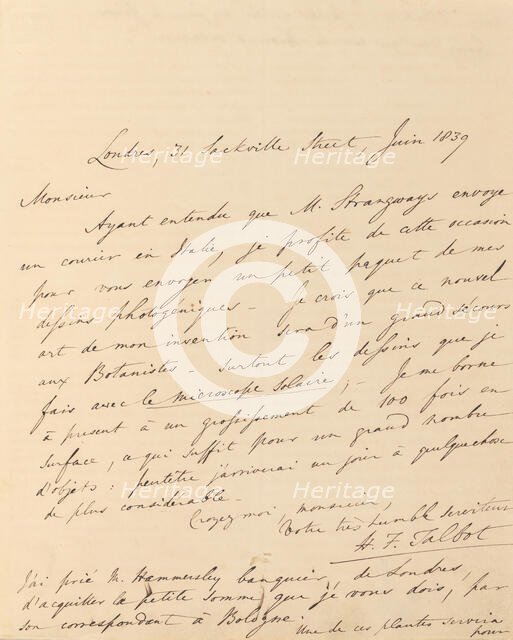 Londres, 31 Sackville Street, Juin 1839
Monsieur
Ayant entendu que M. Strangways envoye
un courier en Italie, je profite de cette occasion
pour vous envoyer un petit paquet de mes
dessins photogéniques – Je crois que ce nouvel
art de mon invention sera d'un grand secours
aux Botanistes – surtout les dessins que je
fais avec le microscope solaire; – Je me borne
à present à un grossissement de 100 fois en
surface, ce qui suffit pour un grand nombre
d'objets: peutêtre j'arriverai un jour à quelquechose
de plus considérable –
Croyez moi, monsieur,
Votre très humble serviteur
H. F. Talbot
J'ai prié M. Hammersley banquier, de Londres,
d'acquitter la petite somme que je vous dois, par
son correspondant à Bologne.
Une de ces plantes servira
pour
Heritage
Heritage
Heritage
Heritage
Heritage
Heritage
Heritage
Heritage
C